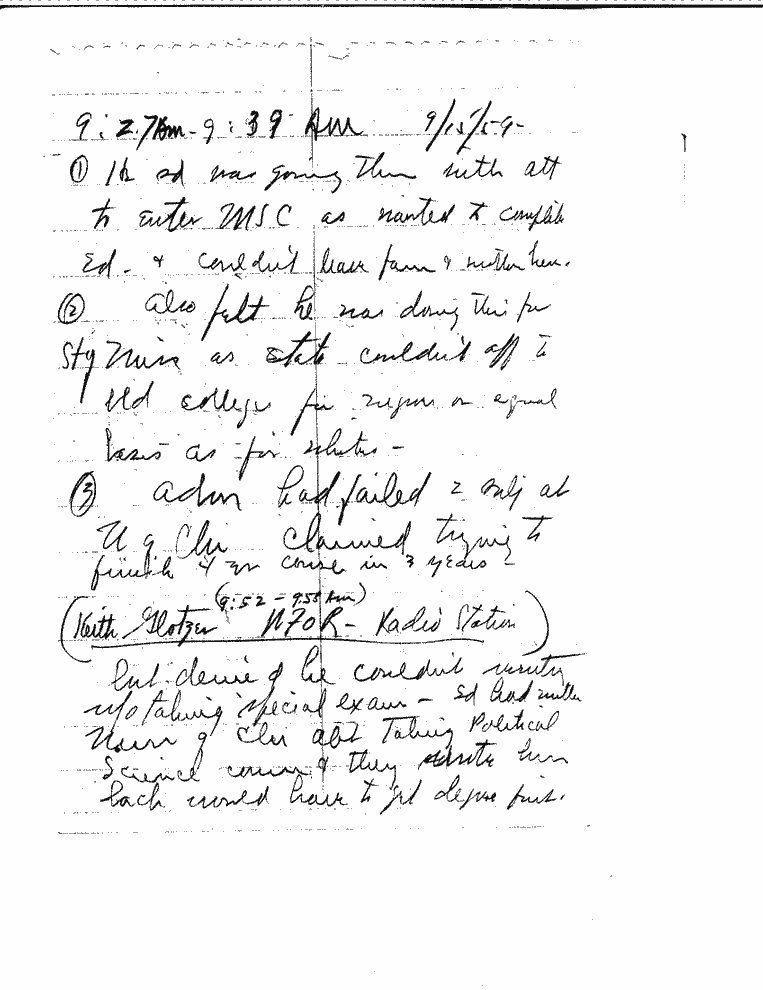 9:27 Am - 9:39 Am 9/15/59-
① He sd was going thru with att
to enter MSC as wanted to complete
Ed. & couldn't leave farm & mother here.
② also felt he was doing this for
as state couldn't aff to
bld college for on equal
basis as for whites -
③ adm had failed 2 subj at
U of Chi claimed trying to
finish 4 yr course in 3 years -
(9:52 - 9:58 Am)
(Keith Glotzer WFOR - Radio Station)
but denied he couldn't
w/o taking special exam - sd had
of Chi abt Taking Political
Science course & they wrote him
back would have to get degree first.